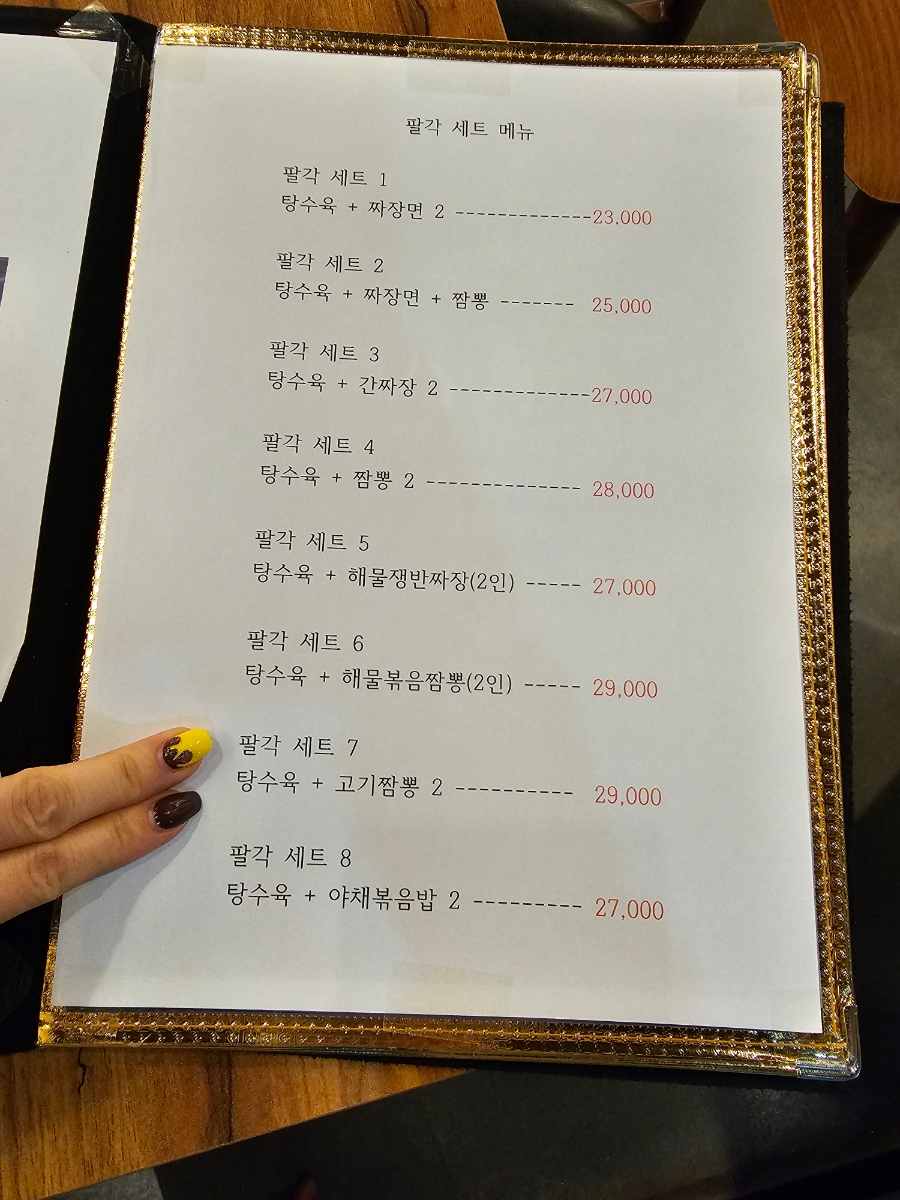 팔각 세트 메뉴
팔각 세트 1
탕수육 + 짜장면 2 -------------23,000
팔각 세트 2
탕수육 + 짜장면 + 짬뽕 ------- 25,000
팔각 세트 3
탕수육 + 간짜장 2 -------------27,000
팔각 세트 4
탕수육 + 짬뽕 2 -------------- 28,000
팔각 세트 5
탕수육 + 해물쟁반짜장(2인) ----- 27,000
팔각 세트 6
탕수육 + 해물볶음짬뽕(2인) ----- 29,000
팔각 세트 7
탕수육 + 고기짬뽕 2 ---------- 29,000
팔각 세트 8
탕수육 + 야채볶음밥 2 --------- 27,000